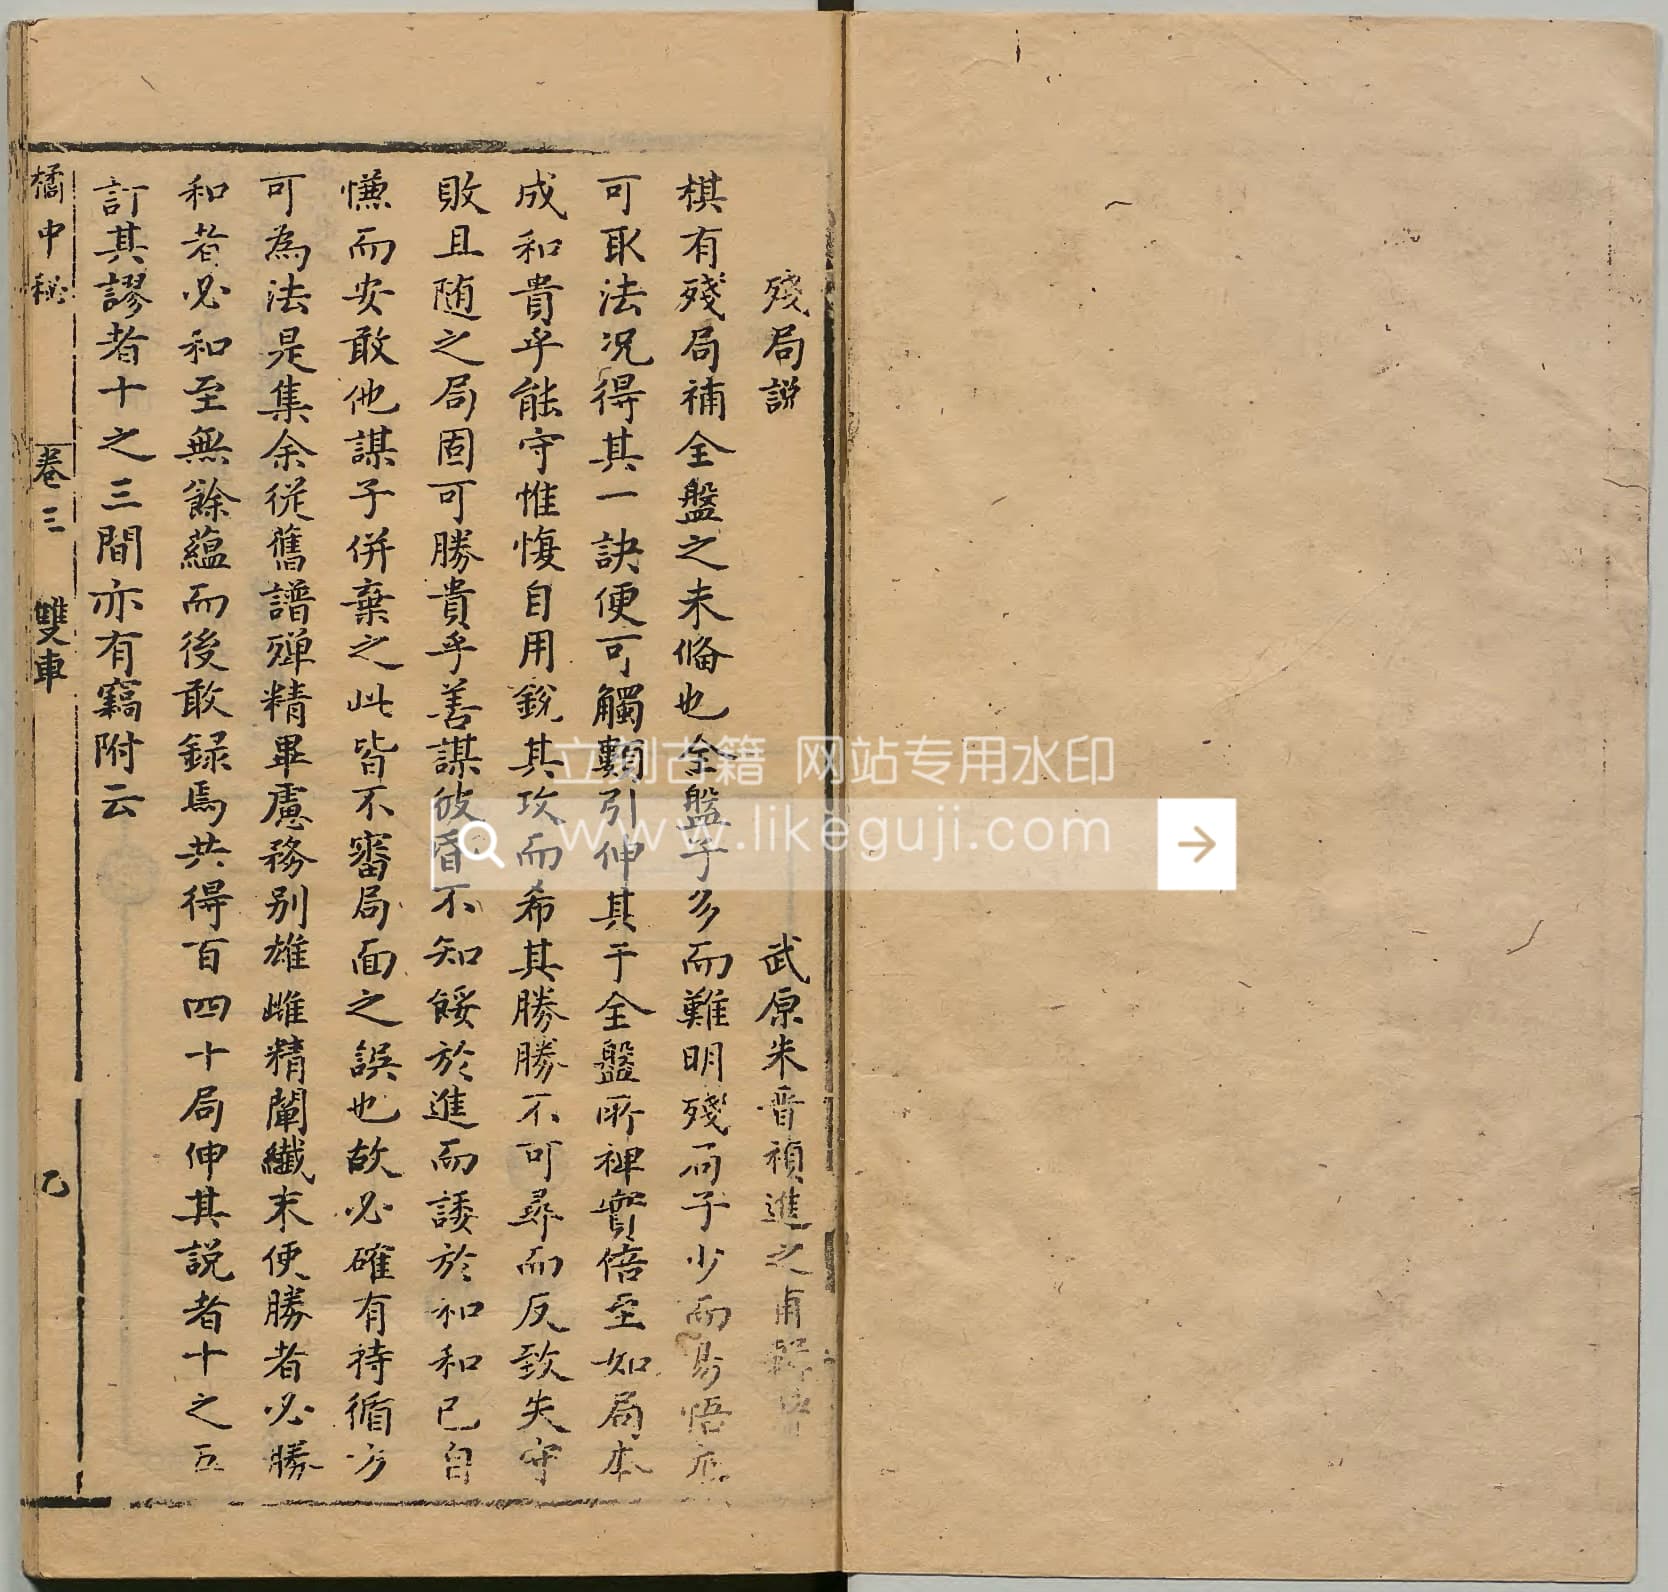 殘局說
武原朱晋禎進之甫輯
棋有殘局補全盤之未偹也全盤子多而難明殘局子少而易悟
可取法况得其一訣便可觸類引伸其于全盤所裨實倍至如局本
成和貴乎能守惟愎自用銳其攻而希其勝勝不可尋而反致失守
敗且随之局固可勝貴乎善謀彼昏不知餒於進而諉於和和已自
慊而安敢他謀子併棄之此皆不審局面之誤也故必確有待循方
可為法是集余從舊譜殫精畢慮務别雄雌精闡纖末便勝者必勝
和者必和至無餘蘊而後敢録焉共得百四十局伸其說者十之五
訂其謬者十之三間亦有竊附云
橘中秘 卷三 雙車 乙
立刻古籍 网站专用水印
www.likeguji.com